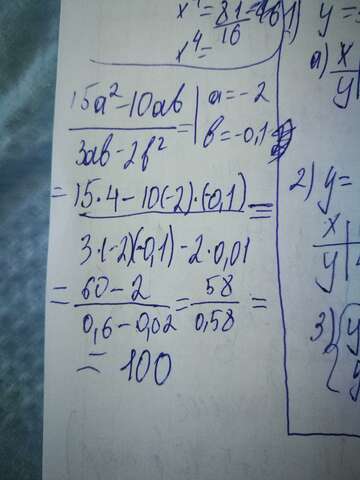 x⁴ = 81/16 =
x⁴ =
(15a² - 10ab)/(3ab - 2b²) = | a = -2
b = -0,1
= (15·4 - 10(-2)·(-0,1))/(3·(-2)(-0,1) - 2·0,01) =
= (60 - 2)/(0,6 - 0,02) = 58/0,58 =
= 100
1) y =
a) x
y
2) y =
x
y
3) { y
y